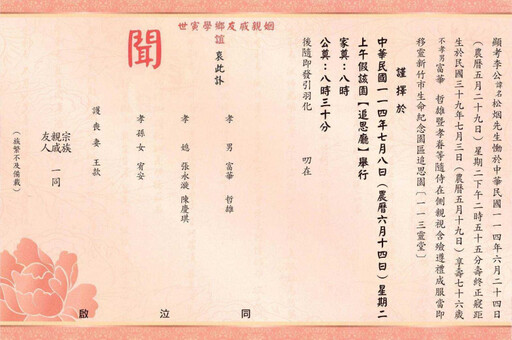 顯考李公諱名松烟先生慟於中華民國一一四年六月二十四日
(農曆五月二十九日)星期二下午二時五十五分壽終正寢距
生於民國三十九年七月三日(農曆五月十九日)享壽七十六歲
不孝男富華 哲雄暨孝眷等隨侍在側親視含殮遵禮成服當即
移靈新竹市生命紀念園區追思園【一一三靈堂】
謹擇於
中華民國一一四年七月八日(農曆六月十四日)星期二
上午假該園【追思廳】舉行
家奠:八時
公奠:八時三十分
後隨即發引羽化
叨在
姻親戚友鄉學寅世
誼
哀此訃
聞
孝男 富華 哲雄
孝媳 張永漩 陳慶琪
孝孫女 宥安
護喪妻 王款
宗族
親戚 一同
友人
(族繁不及備載)
同泣啟